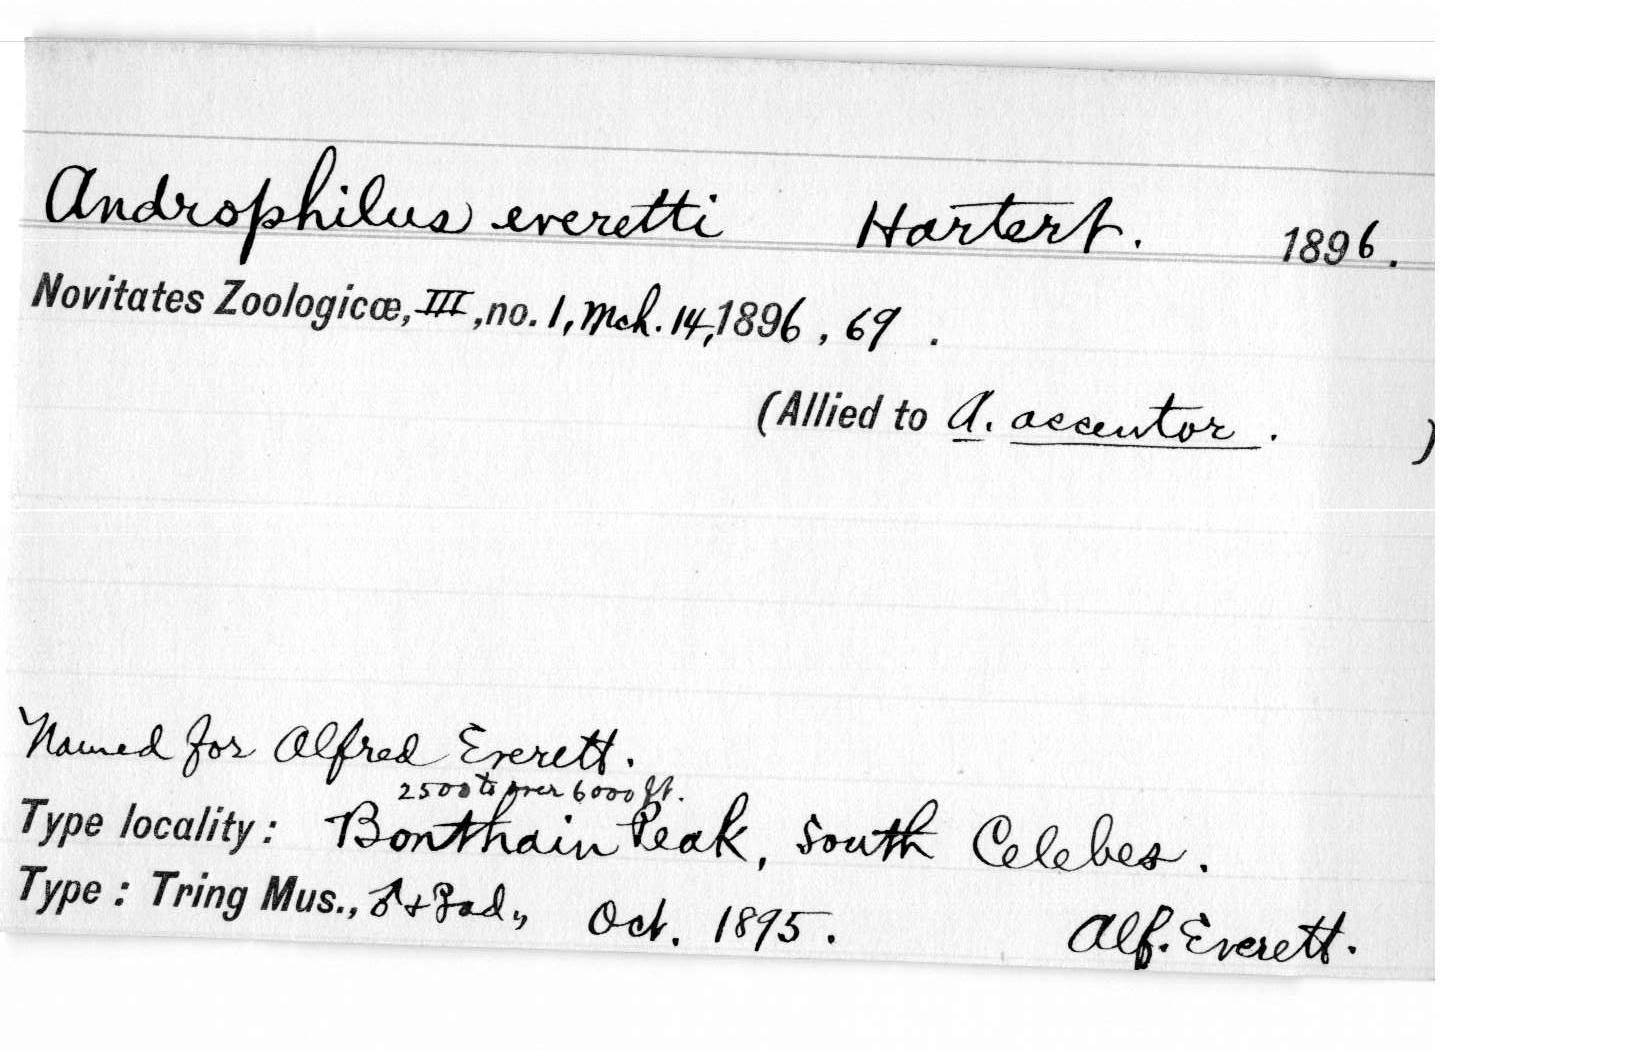 Androphilus everetti Hartert. 1896.
Novitates Zoologicæ, III, no. 1, Mch. 14, 1896, 69 .
(Allied to A. accentor. )
Named for Alfred Everett.
2500 to over 6000 ft.
Type locality: Bonthain Peak, South Celebes.
Type: Tring Mus., ♂ + ♀ ad., Oct. 1895. Alf. Everett.